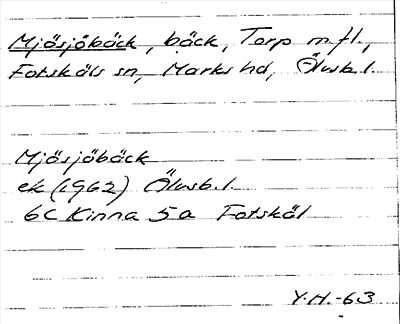 Mjösjöbäck, bäck, Torp m.fl.,
Fotskäls sn, Marks hd, Älvsb.l.
Mjösjöbäck
ek (1962) Älvsb.l.
6C Kinna 5a Fotskäl
Y.H.-63